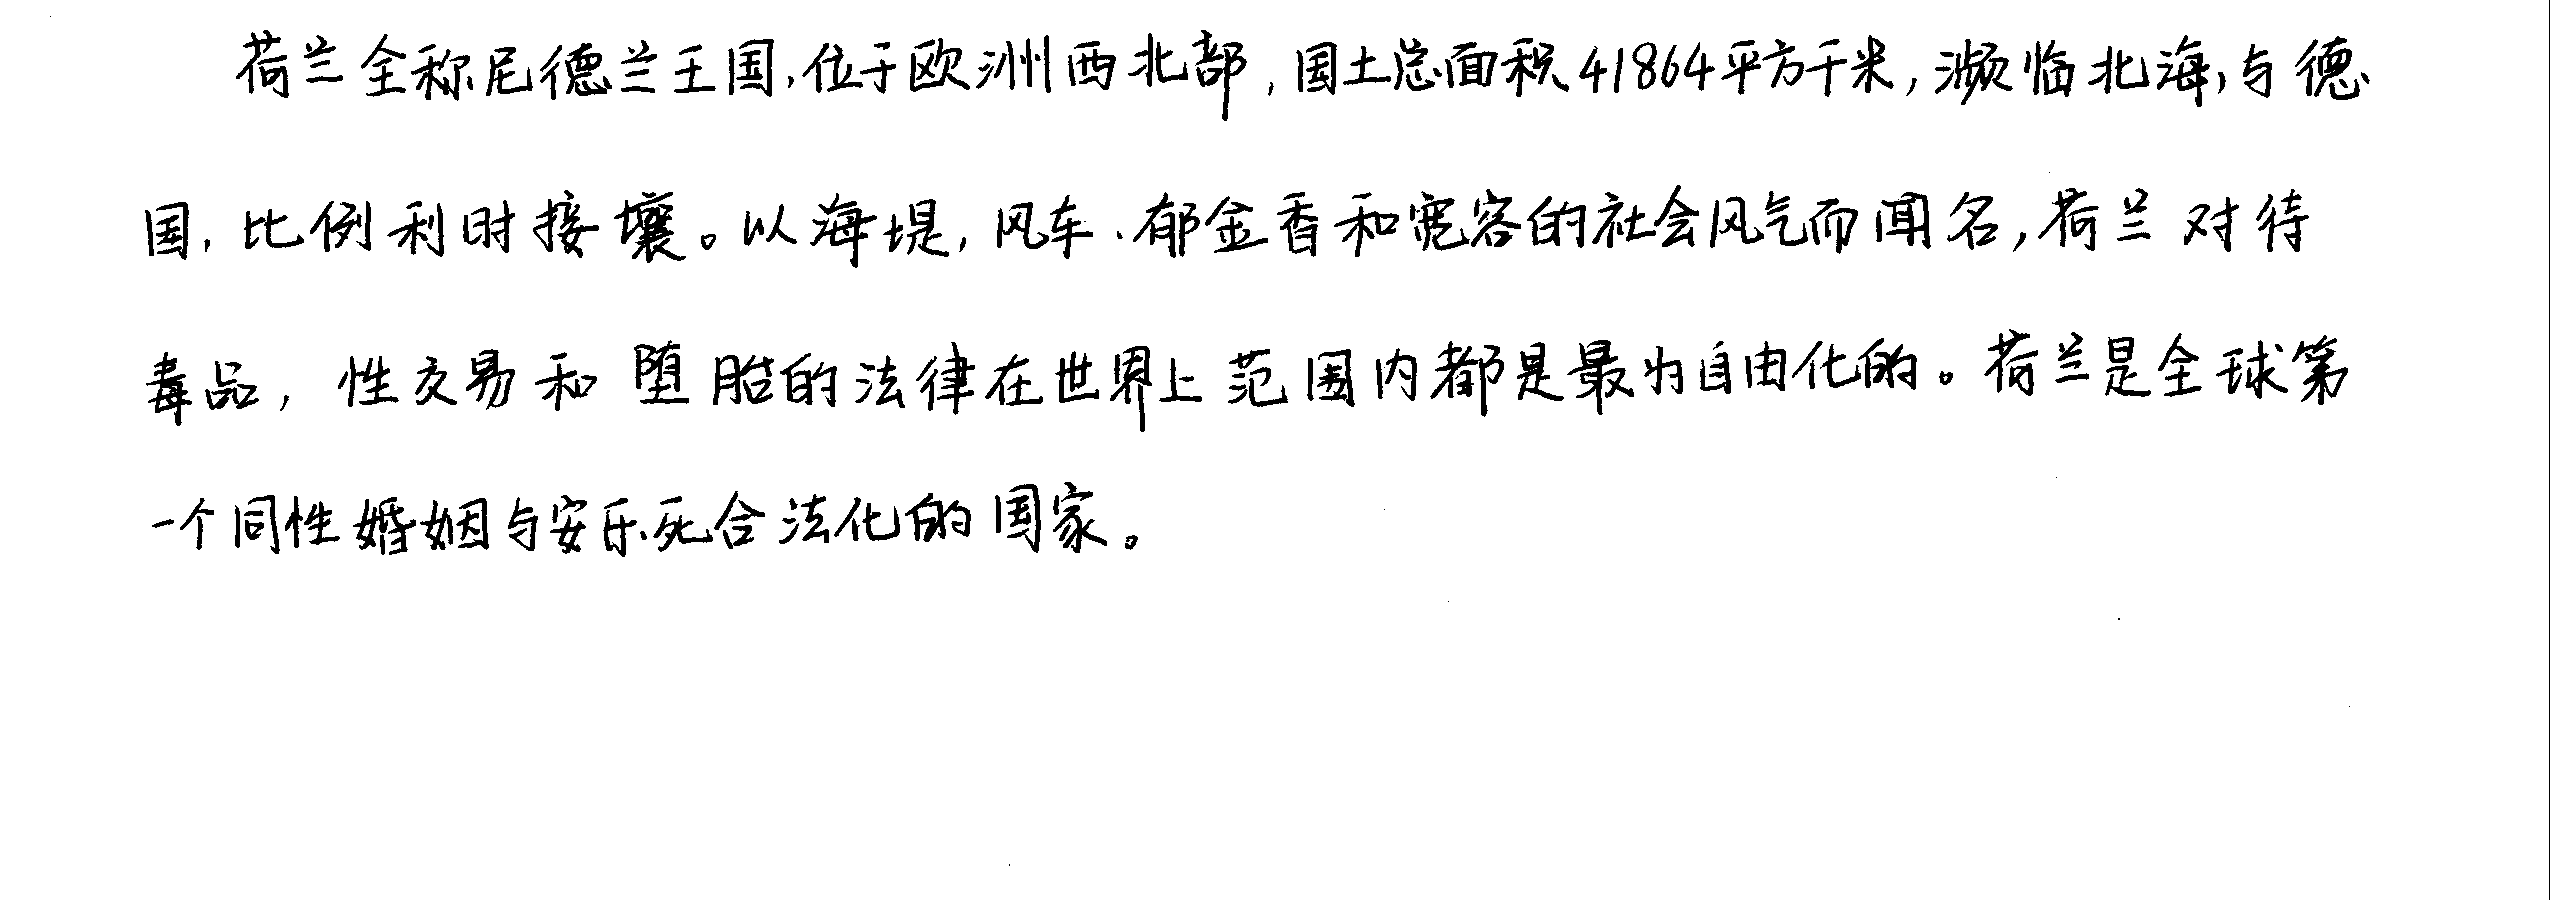 荷兰全称尼德兰王国,位于欧洲西北部,国土总面积41864平方千米,濒临北海,与德
国,比例利时接壤。以海堤,风车.郁金香和宽容的社会风气而闻名,荷兰对待
毒品,性交易和堕胎的法律在世界上范围内都是最为自由化的。荷兰是全球第
一个同性婚姻与安乐死合法化的国家。